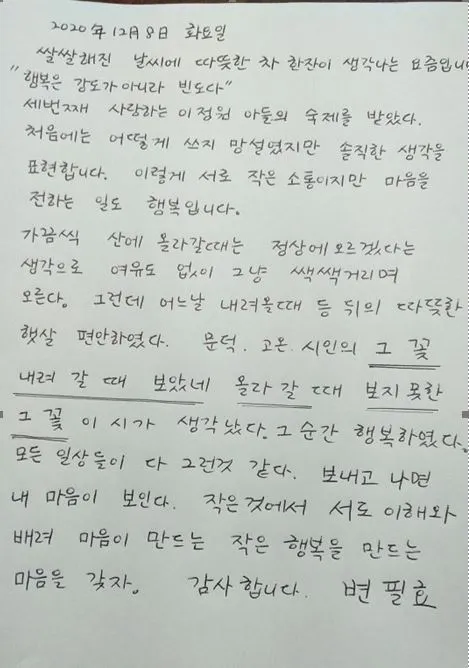 2020年 12月 8日 화요일
쌀쌀해진 날씨에 따뜻한 차 한잔이 생각나는 요즘입니
"행복은 강도가 아니라 빈도다"
세번째 사랑하는 이정원 아들의 숙제를 받았다.
처음에는 어떻게 쓰지 망설였지만 솔직한 생각을
표현합니다. 이렇게 서로 작은 소통이지만 마음을
전하는 일도 행복입니다.
가끔씩 산에 올라갈때는 정상에 오르겠다는
생각으로 여유도 없이 그냥 쌕쌕거리며
오른다. 그런데 어느날 내려올때 등 뒤의 따뜻한
햇살 편안하였다. 문덕. 고은. 시인의 그 꽃
내려 갈 때 보았네 올라 갈 때 보지 못한
그 꽃 이 시가 생각 났다. 그 순간 행복하였다.
모든 일상들이 다 그런것 같다. 보내고 나면
내 마음이 보인다. 작은것에서 서로 이해와
배려 마음이 만드는 작은 행복을 만드는
마음을 갖자. 감사합니다. 변필효